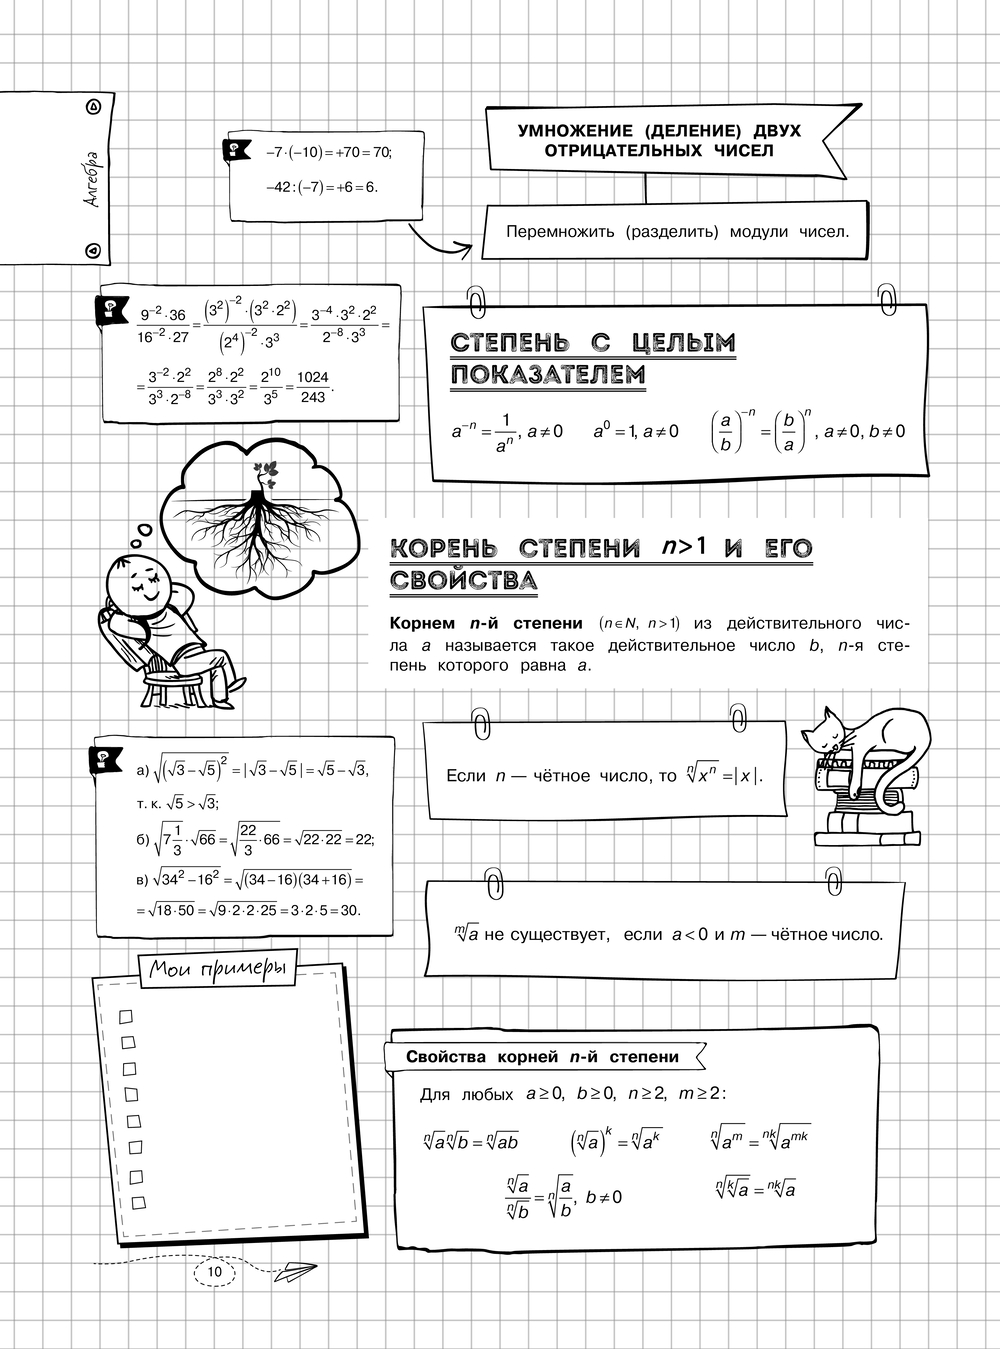 Алгебра
−7·(−10)=+70=70;
−42:(−7)=+6=6.
УМНОЖЕНИЕ (ДЕЛЕНИЕ) ДВУХ
ОТРИЦАТЕЛЬНЫХ ЧИСЕЛ
Перемножить (разделить) модули чисел.
9⁻²·36/16⁻²·27 = (3²)⁻²·(3²·2²)/(2⁴)⁻²·3³ = 3⁻⁴·3²·2²/2⁻⁸·3³ =
= 3⁻²·2²/3³·2⁻⁸ = 2⁸·2²/3³·3² = 2¹⁰/3⁵ = 1024/243.
СТЕПЕНЬ С ЦЕЛЫМ
ПОКАЗАТЕЛЕМ
a⁻ⁿ = 1/aⁿ, a≠0 a⁰=1, a≠0 (a/b)⁻ⁿ = (b/a)ⁿ, a≠0, b≠0
КОРЕНЬ СТЕПЕНИ n>1 И ЕГО
СВОЙСТВА
Корнем n-й степени (n∈N, n>1) из действительного чис-
ла a называется такое действительное число b, n-я сте-
пень которого равна a.
а) √(√3−√5)² = |√3−√5| = √5−√3,
т. к. √5 > √3;
б) √7 1/3·√66 = √22/3·66 = √22·22 = 22;
в) √34²−16² = √(34−16)(34+16) =
= √18·50 = √9·2·2·25 = 3·2·5 = 30.
Если n — чётное число, то ⁿ√xⁿ = |x|.
ᵐ√a не существует, если a<0 и m — чётное число.
Мои примеры
Свойства корней n-й степени
Для любых a≥0, b≥0, n≥2, m≥2:
ⁿ√a ⁿ√b = ⁿ√ab (ⁿ√a)ᵏ = ⁿ√aᵏ ⁿ√aᵐ = ⁿᵏ√aᵐᵏ
ⁿ√a/ⁿ√b = ⁿ√a/b, b≠0 ⁿ√ᵏ√a = ⁿᵏ√a
10